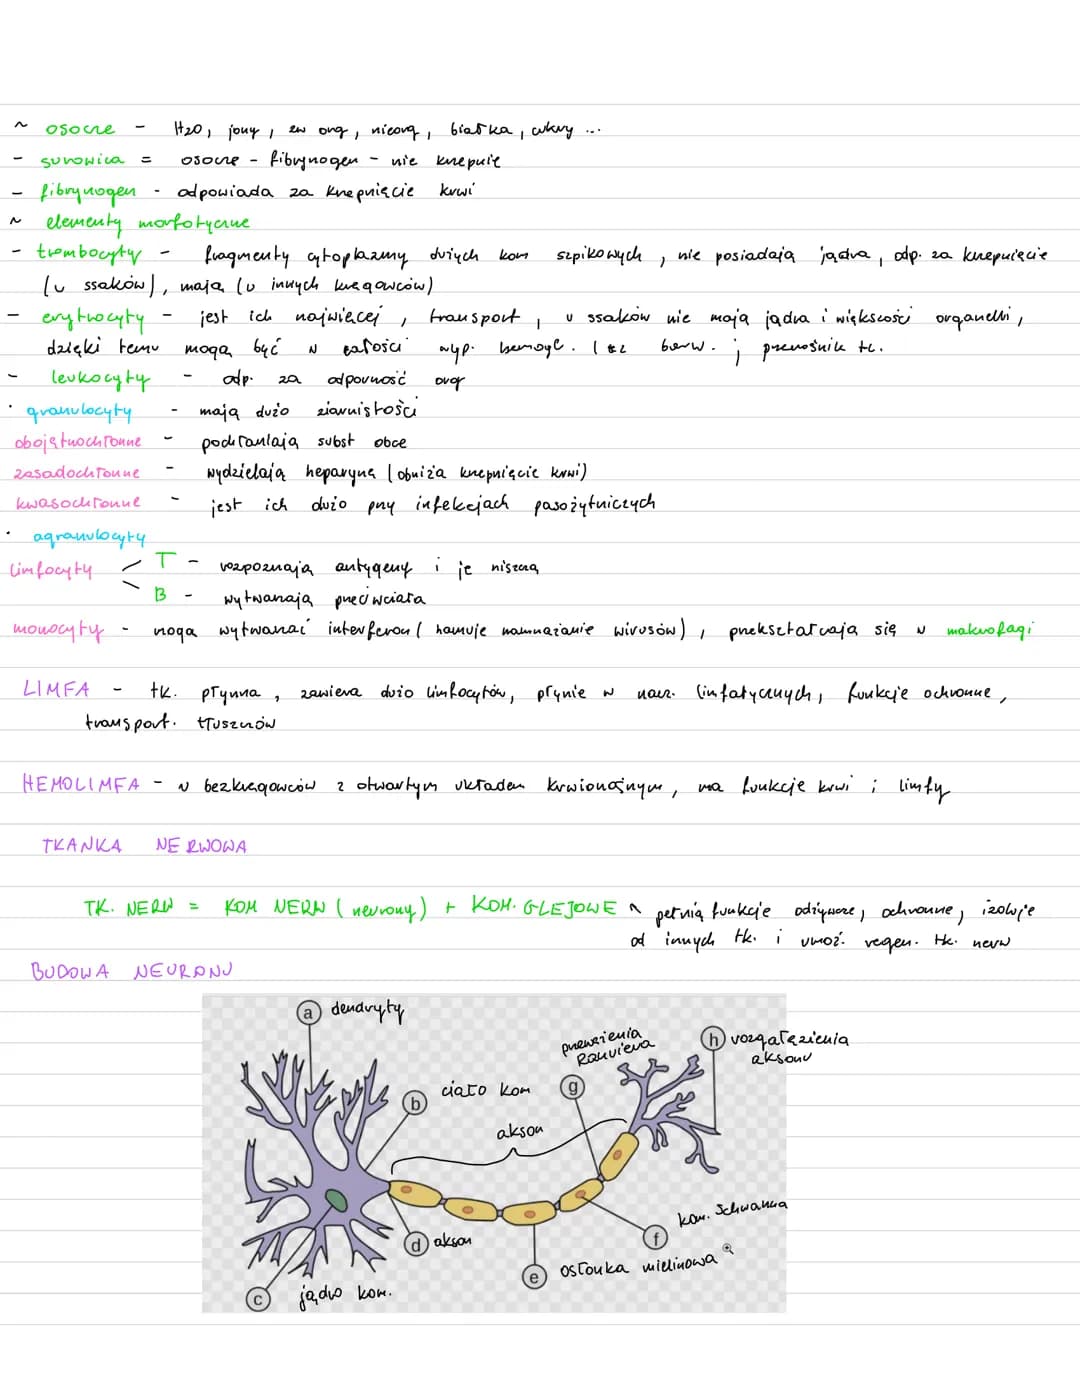 ~ osocze - H2O, jony, zw org, nieorg, białka, cukry ...
- surowica = osocze - fibrynogen - nie krzepnie
- fibrynogen - odpowiada za krzepnięcie krwi
~ elementy morfotyczne
- trombocyty - fragmenty cytoplazmy dużych kom szpikowych, nie posiadają jądra, odp. za krzepnięcie
(u ssaków), mają (u innych kręgowców)
- erytrocyty - jest ich najwięcej, transport, u ssaków nie mają jądra i większości organelli,
dzięki temu mogą być w całości wyp. hemogl. barw. ; przenośnik tl.
- leukocyty - odp. za odporność org
· granulocyty - mają dużo ziarnistości
obojętnochłonne - pochłaniają subst obce
zasadochłonne - wydzielają heparynę (obniża krzepnięcie krwi)
kwasochłonne - jest ich dużo przy infekcjach pasożytniczych
· agranulocyty
limfocyty < T - rozpoznają antygeny i je niszczą
B - wytwarzają przeciwciała
monocyty - mogą wytwarzać interferon (hamuje namnażanie wirusów), przekształcają się w makrofagi
LIMFA - tk. płynna, zawiera dużo limfocytów, płynie w nacz. limfatycznych, funkcje ochronne,
transport. tłuszczów
HEMOLIMFA - u bezkręgowców z otwartym układem krwionośnym, ma funkcje krwi i limfy
TKANKA NERWOWA
TK. NERW = KOM NERW (neurony) + KOM. GLEJOWE pełnią funkcje odżywcze, ochronne, izoluje
od innych tk. i umoż. regen. tk. nerw
BUDOWA NEURONU
a dendryty
przewężenia
Ranviera
h rozgałęzienia
aksonu
b ciało kom
g
akson
kom. Schwanna
d akson
f
e osłonka mielinowa
c jądro kom.